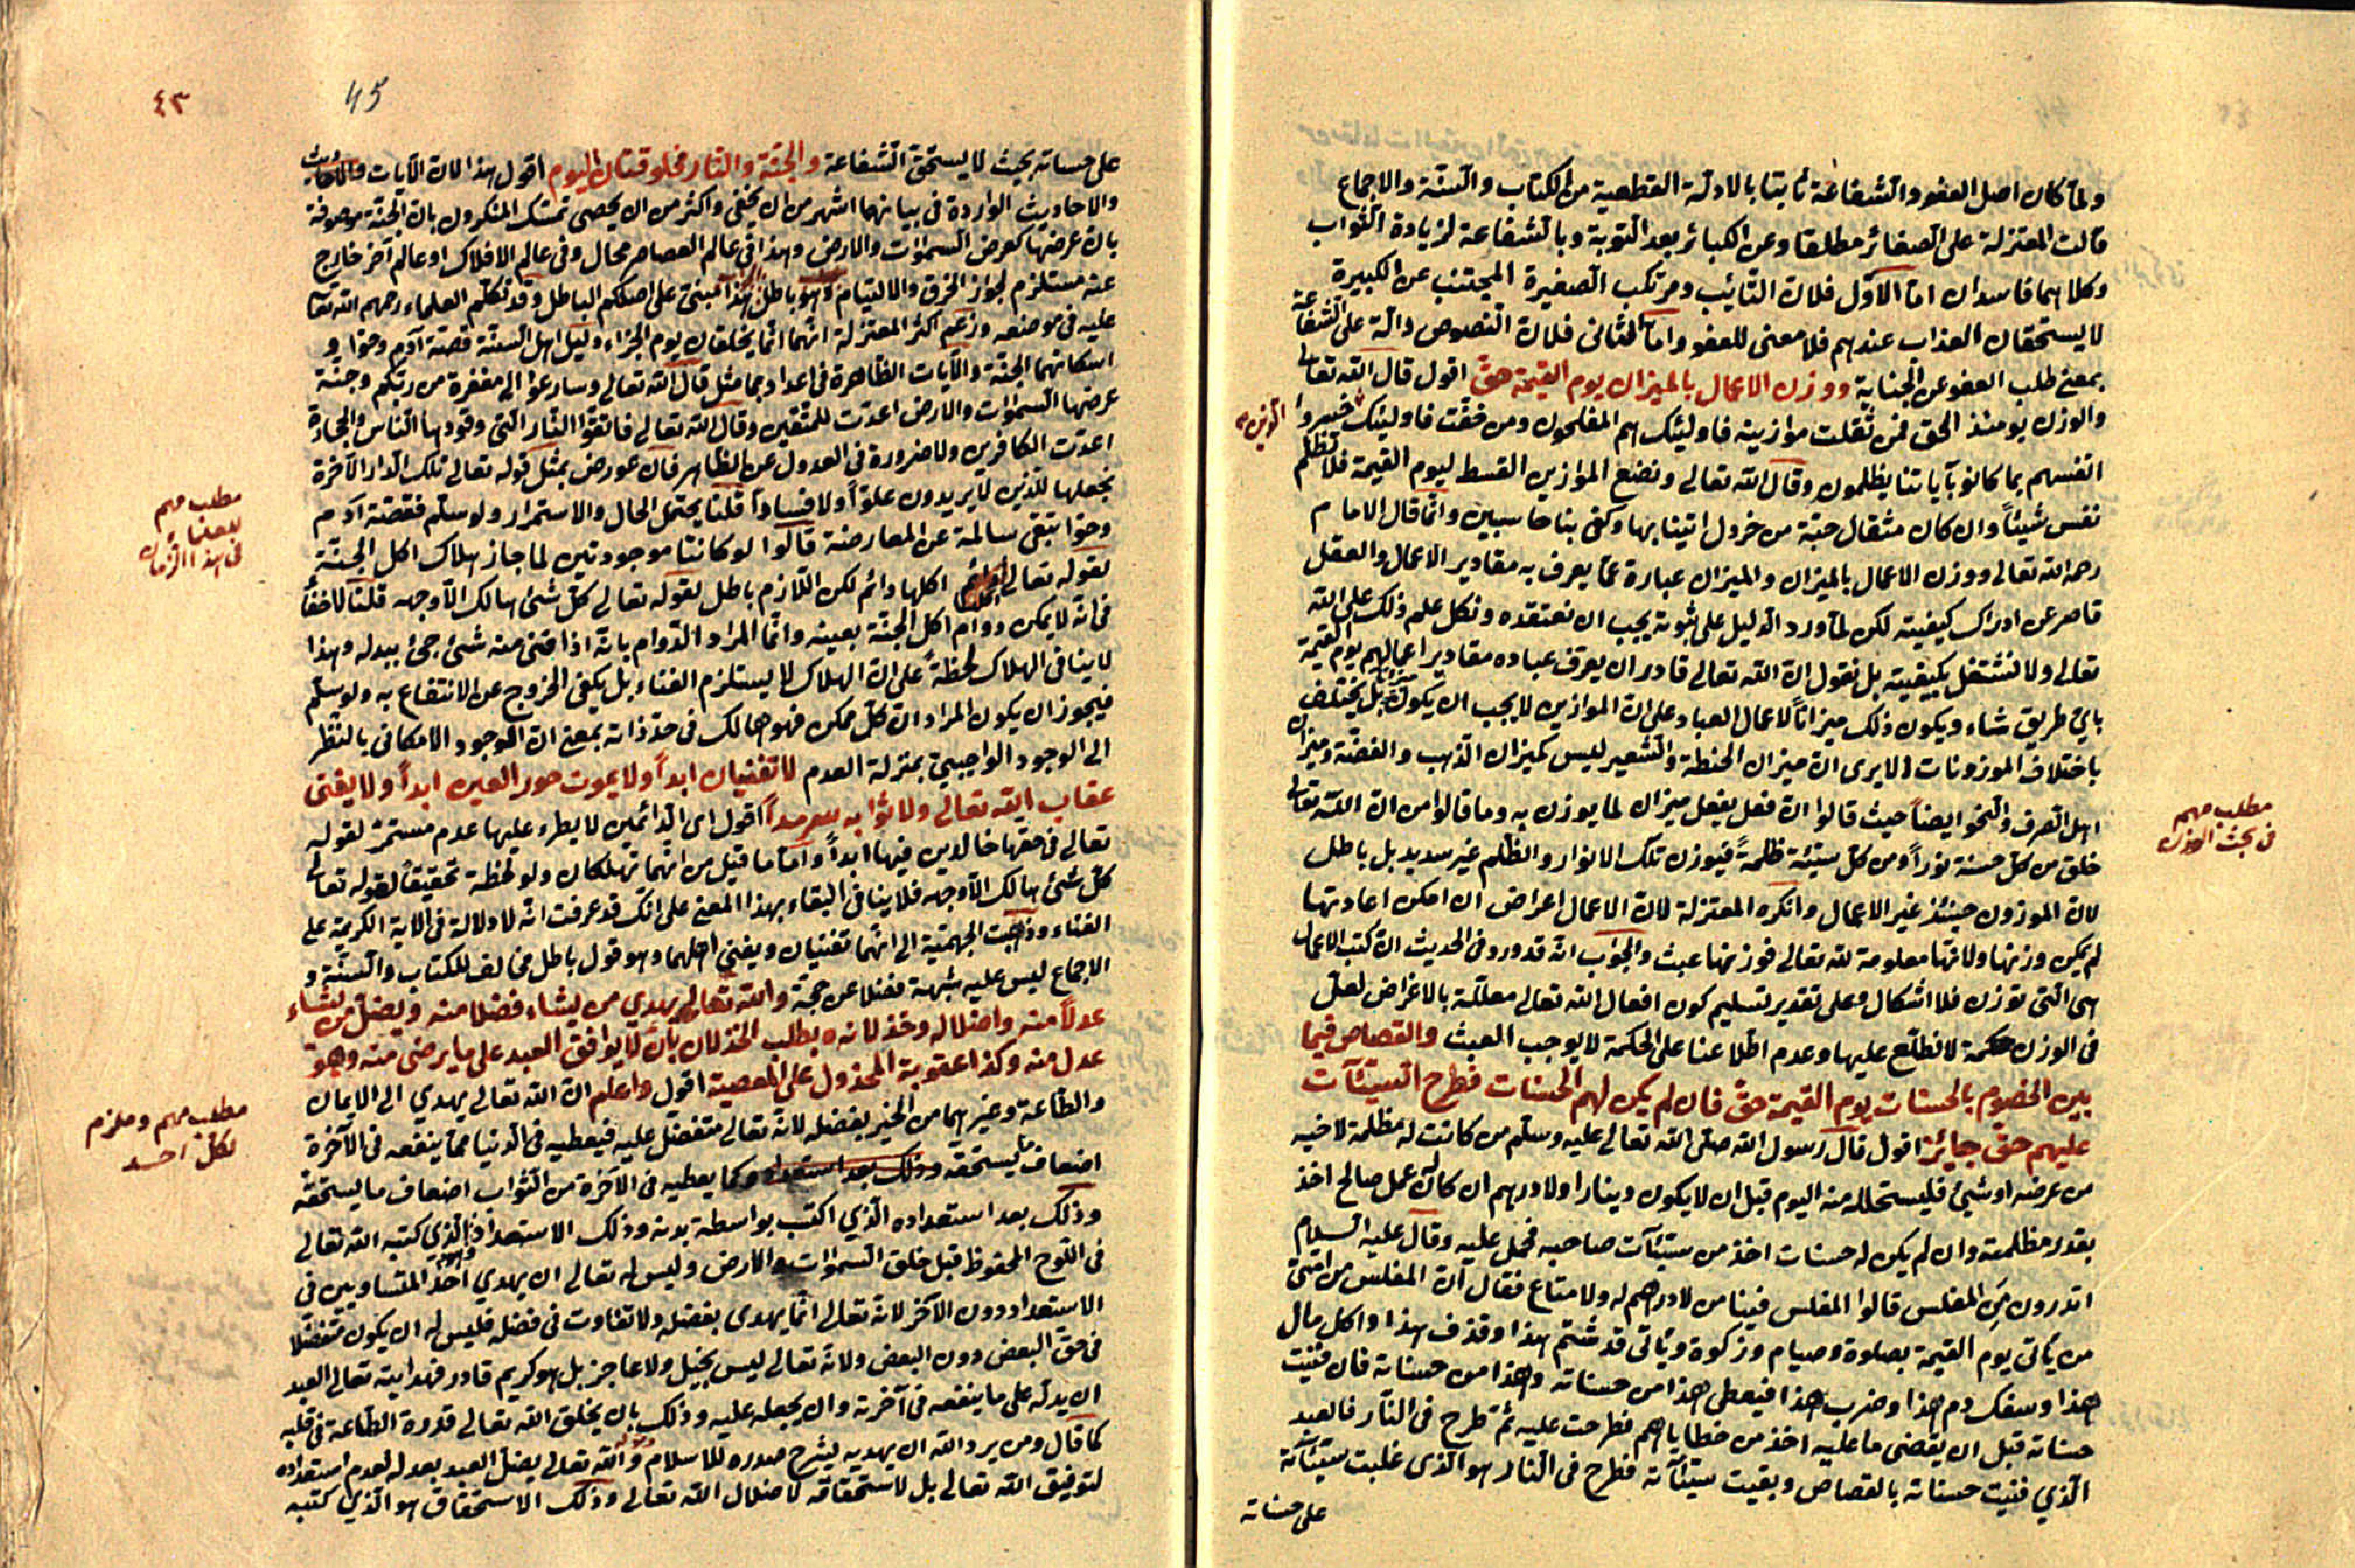 ولما كان اصل العفو والشفاعة ثابتا بالادلة القطعية من الكتاب والسنة والاجماع
قالت المعتزلة على الصغائر مطلقا وعن الكبائر بعد التوبة وبالشفاعة لزيادة الثواب
وكلاهما فاسدان اما الاول فلان التائب ومرتكب الصغيرة المجتنب عن الكبيرة
لا يستحقان العذاب عندهم فلا معنى للعفو واما الثانى فلان النصوص دالة على الشفاعة
بمعنى طلب العفو عن الجناية ووزن الاعمال بالميزان يوم القيمة حق اقول قال الله تعالى
والوزن يومئذ الحق فمن ثقلت موازينه فاولئك هم المفلحون ومن خفت فاولئك خسروا
الذين
انفسهم بما كانوا بآياتنا يظلمون وقال الله تعالى ونضع الموازين القسط ليوم القيمة فلا تظلم
نفس شيئاً وان كان مثقال حبة من خردل اتينا بها وكفى بنا حاسبين وانما قال الامام
رحمه الله تعالى ووزن الاعمال بالميزان والميزان عبارة عما يعرف به مقادير الاعمال والعقل
قاصر عن ادراك كيفيته لكن لما ورد الدليل على ثبوته يجب ان نعتقده ونكل علم ذلك على الله
تعالى ولا نشتغل بكيفيته بل نقول ان الله تعالى قادر ان يعرف عباده مقادير اعمالهم يوم القيمة
باي طريق شاء ويكون ذلك ميزاناً لاعمال العباد على ان الموازين لا يجب ان يكون بل يختلف
باختلاف الموزونات الا يرى ان ميزان الحنطة والشعير ليس كميزان الذهب والفضة وميزان
اهل الصرف والنحو ايضاً حيث قالوا ان فعل يفعل ميزان لما يوزن به وما قالوا من ان الله تعالى
خلق من كل حسنة نوراً ومن كل سيئة ظلمةً فيوزن تلك الانوار والظلم غير سديد بل باطل
لان الموزون حينئذ غير الاعمال وانكره المعتزلة لان الاعمال اعراض ان امكن اعادتها
لم يمكن وزنها ولانها معلومة لله تعالى فوزنها عبث والجواب انه قد ورد فى الحديث ان كتب الاعمال
هى التى توزن فلا اشكال وعلى تقدير تسليم كون افعال الله تعالى معللة بالاغراض لعل
فى الوزن حكمة لا نطلع عليها وعدم اطلاعنا على الحكمة لا يوجب العبث والقصاص فيما
بين الخصوم بالحسنات يوم القيمة حق فان لم يكن لهم الحسنات فطرح السيئآت
عليهم حق جايز اقول قال رسول الله صلى الله تعالى عليه وسلم من كانت له مظلمة لاخيه
من عرضه او شئ فليستحلله منه اليوم قبل ان لا يكون دينارا ولا درهم ان كان له عمل صالح اخذ
بقدر مظلمته وان لم يكن له حسنات اخذ من سيئآت صاحبه فحمل عليه وقال عليه السلام
اتدرون من المفلس قالوا المفلس فينا من لا درهم له ولا متاع فقال ان المفلس من امتى
من يأتى يوم القيمة بصلوة وصيام وزكوة ويأتى قد شتم هذا وقذف هذا واكل مال
هذا وسفك دم هذا وضرب هذا فيعطى هذا من حسناته وهذا من حسناته فان فنيت
حسناته قبل ان يقضى ما عليه اخذ من خطاياهم فطرحت عليه ثم طرح فى النار فالعبد
الذي فنيت حسناته بالقصاص وبقيت سيئآته فطرح فى النار هو الذى غلبت سيئآته
على حسناته
مطلب مهم
فى بحث الوزن
٤٣
45
على حسناته بحيث لا يستحق الشفاعة والجنة والنار مخلوقتان اليوم اقول هذا لان الآيات
والاحاديث الواردة فى بيانهما اشهر من ان يخفى واكثر من ان يحصى تمسك المنكرون بان الجنة موصوفة
بان عرضها كعرض السموات والارض وهذا فى عالم العصاصر محال وفى عالم الافلاك او عالم آخر خارج
عنه مستلزم لجواز الخرق والالتيام وهو باطل هذا مبنى على اصلكم الباطل وقد تكلم العلماء رحمهم الله تعا
عليه فى موضعه وزعم اكثر المعتزلة انهما انما يخلقان يوم الجزاء دليل اهل السنة قصة آدم وحوا و
اسكانهما الجنة والآيات الظاهرة فى اعدادهما مثل قال الله تعالى وسارعوا الى مغفرة من ربكم وجنة
عرضها السموات والارض اعدت للمتقين وقال الله تعالى فاتقوا النار التى وقودها الناس والحجارة
اعدت الكافرين ولا ضرورة فى العدول عن الظاهر فان عورض بمثل قوله تعالى تلك الدار الآخرة
نجعلها للذين لا يريدون علواً ولا فساداً قلنا يحتمل الحال والاستمرار ولو سلم فقصة آدم
وحوا تبقى سالمة عن المعارضة قالوا لو كانتا موجودتين لما جاز هلاك اكل الجنة
لقوله تعالى اكلها دائم لكن اللازم باطل لقوله تعالى كل شئ هالك الا وجهه قلنا لا خفأ
فى انه لا يمكن دوام اكل الجنة بعينه وانما المراد الدوام بانه اذا فنى منه شئ جئ ببدله وهذا
لا ينافى الهلاك لحظةً على ان الهلاك لا يستلزم الفناء بل يكفى الخروج عن الانتفاع به ولو سلم
فيجوز ان يكون المراد ان كل ممكن فهو هالك فى حد ذاته بمعنى ان الوجود الامكانى بالنظر
الى الوجود الواجبى بمنزلة العدم لا تفنيان ابداً ولا يموت حور العين ابداً ولا يفنى
عقاب الله تعالى ولا ثوابه سرمداً اقول اى الدائمين لا يطرء عليها عدم مستمر لقوله
تعالى فى حقها خالدين فيها ابداً واما ما قيل من انهما تهلكان ولو لحظة تحقيقاً لقوله تعالى
كل شئ هالك الا وجهه فلا ينافى البقاء بهذا المعنى على انك قد عرفت انه لا دلالة فى الاية الكريمة على
الفناء وذهبت الجهمية الى انهما تفنيان ويفنى اهلهما وهو قول باطل مخالف للكتاب والسنة و
الاجماع ليس عليه شبهة فضلا عن حجة والله تعالى يهدي من يشاء فضلا منه ويضل من يشاء
عدلاً منه واضلاله وخذلانه بطلب الخذلان بان لا يوافق العبد على ما يرضى منه وهو
عدل منه وكذا عقوبة المخذول على المعصية اقول واعلم ان الله تعالى يهدي الى الايمان
والطاعة وغيرهما من الخير بفضله لانه تعالى متفضل عليه فيعطيه فى الدنيا مما ينفعه فى الآخرة
اضعاف ما يستحقه وذلك بعد استعداد وكما يعطيه فى الآخرة من الثواب اضعاف ما يستحقه
وذلك بعد استعداده الذي اكتب بواسطة بدنه وذلك الاستعداد الذي كتبه الله تعالى
فى اللوح المحفوظ قبل خلق السموات والارض وليس له تعالى ان يهدي احد المتساويين فى
الاستعداد دون الآخر لانه تعالى انما يهدى بفضله ولا تفاوت فى فضله فليس له ان يكون متفضلا
فى حق البعض دون البعض ولانه تعالى ليس بخيل ولا عاجز بل هو كريم قادر فهدايته تعالى العبد
ان يدله على ما ينفعه فى آخرته وان يجعله عليه وذلك بان يخلق الله تعالى قدرة الطاعة فى قلبه
كما قال ومن يرد الله ان يهديه يشرح صدره للاسلام والله تعالى يضل العبد بعدله لعدم استعداده
لتوفيق الله تعالى بل لاستحقاقه لاضلال الله تعالى وذلك الاستحقاق هو الذي كتبه
مطلب مهم
فى هذا الزمان
مطلب مهم وملزم
لكل احد